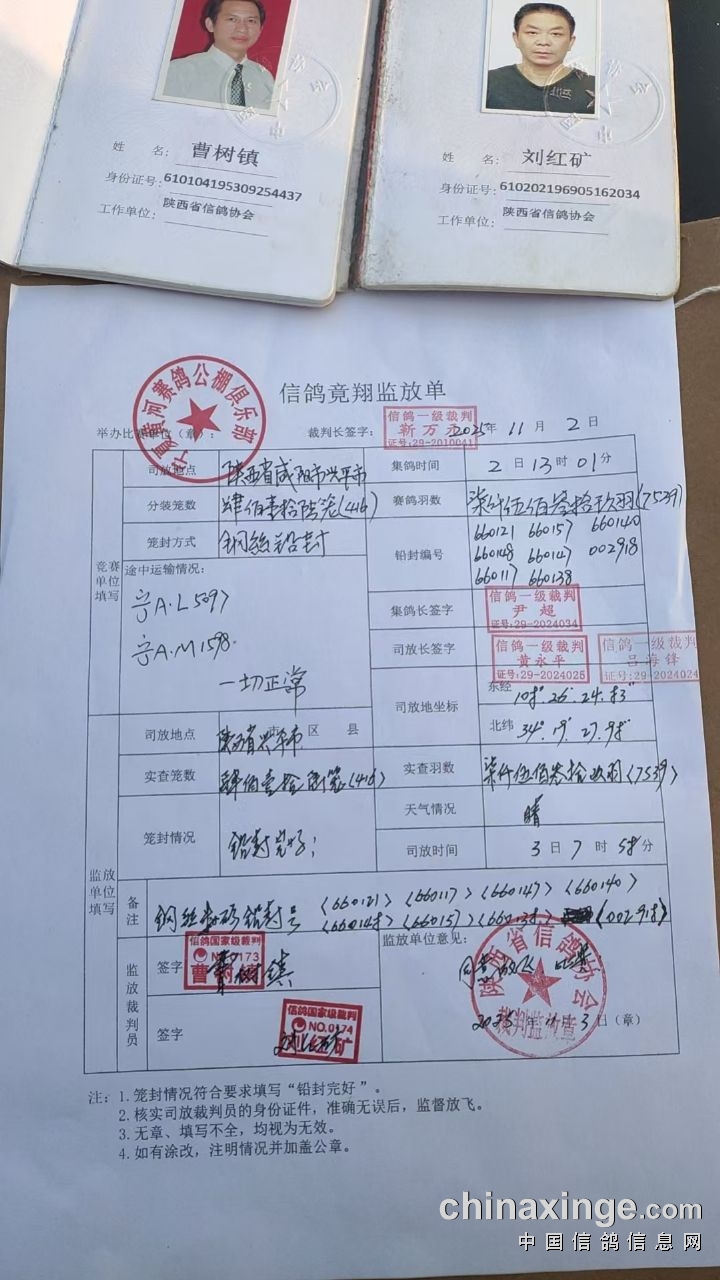 姓 名: 曹树镇
身份证号: 610104195309254437
工作单位: 陕西省信鸽协会
姓 名: 刘红矿
身份证号: 610202196905162034
工作单位: 陕西省信鸽协会
信鸽竟翔监放单
举办比赛单位(章):
黄河赛鸽公棚俱乐部
裁判长签字:
信鸽一级裁判
靳万
证号:29-2010041
2025年 11 月 2 日
竞赛单位填写
司放地点 陕西省咸阳市兴平市
集鸽时间 2 日 13 时 01 分
分装笼数 肆佰壹拾陆笼(416)
赛鸽羽数 柒仟伍佰叁拾玖羽(7539)
笼封方式 钢丝铅封
铅封编号
660121 660157 660140
660148 660147 002918
660117 660138
途中运输情况:
宁A·L5097
宁A·M1598·
一切正常
集鸽长签字
信鸽一级裁判
尹超
证号:29-2024034
司放长签字
信鸽一级裁判
黄永平
证号:29-2024025
信鸽一级裁判
吕海锋
证号:29-2024024
司放地坐标
东经 108° 26′ 24.83″
北纬 34° 19′ 27.98″
监放单位填写
司放地点 陕西省兴平市 市 区 县
实查笼数 肆佰壹拾陆笼(416)
实查羽数 柒仟伍佰叁拾玖羽(7539)
天气情况 晴
笼封情况 铅封完好;
司放时间 3 日 7 时 58 分
备注
钢丝 铅封号 (660121)(660117)(660147)(660140)
(660148)(660157)(660138)(002918)
监放裁判员
签字
信鸽国家级裁判
NO.0173
曹树镇
签字
信鸽国家级裁判
NO.0174
矿
监放单位意见:
同意放飞
陕西省信鸽协会
裁判监放章
2025 年 11 月 3 日(章)
注: 1. 笼封情况符合要求填写“铅封完好”。
2. 核实司放裁判员的身份证件，准确无误后，监督放飞。
3. 无章、填写不全，均视为无效。
4. 如有涂改，注明情况并加盖公章。
chinaxinge.com
中国信鸽信息网